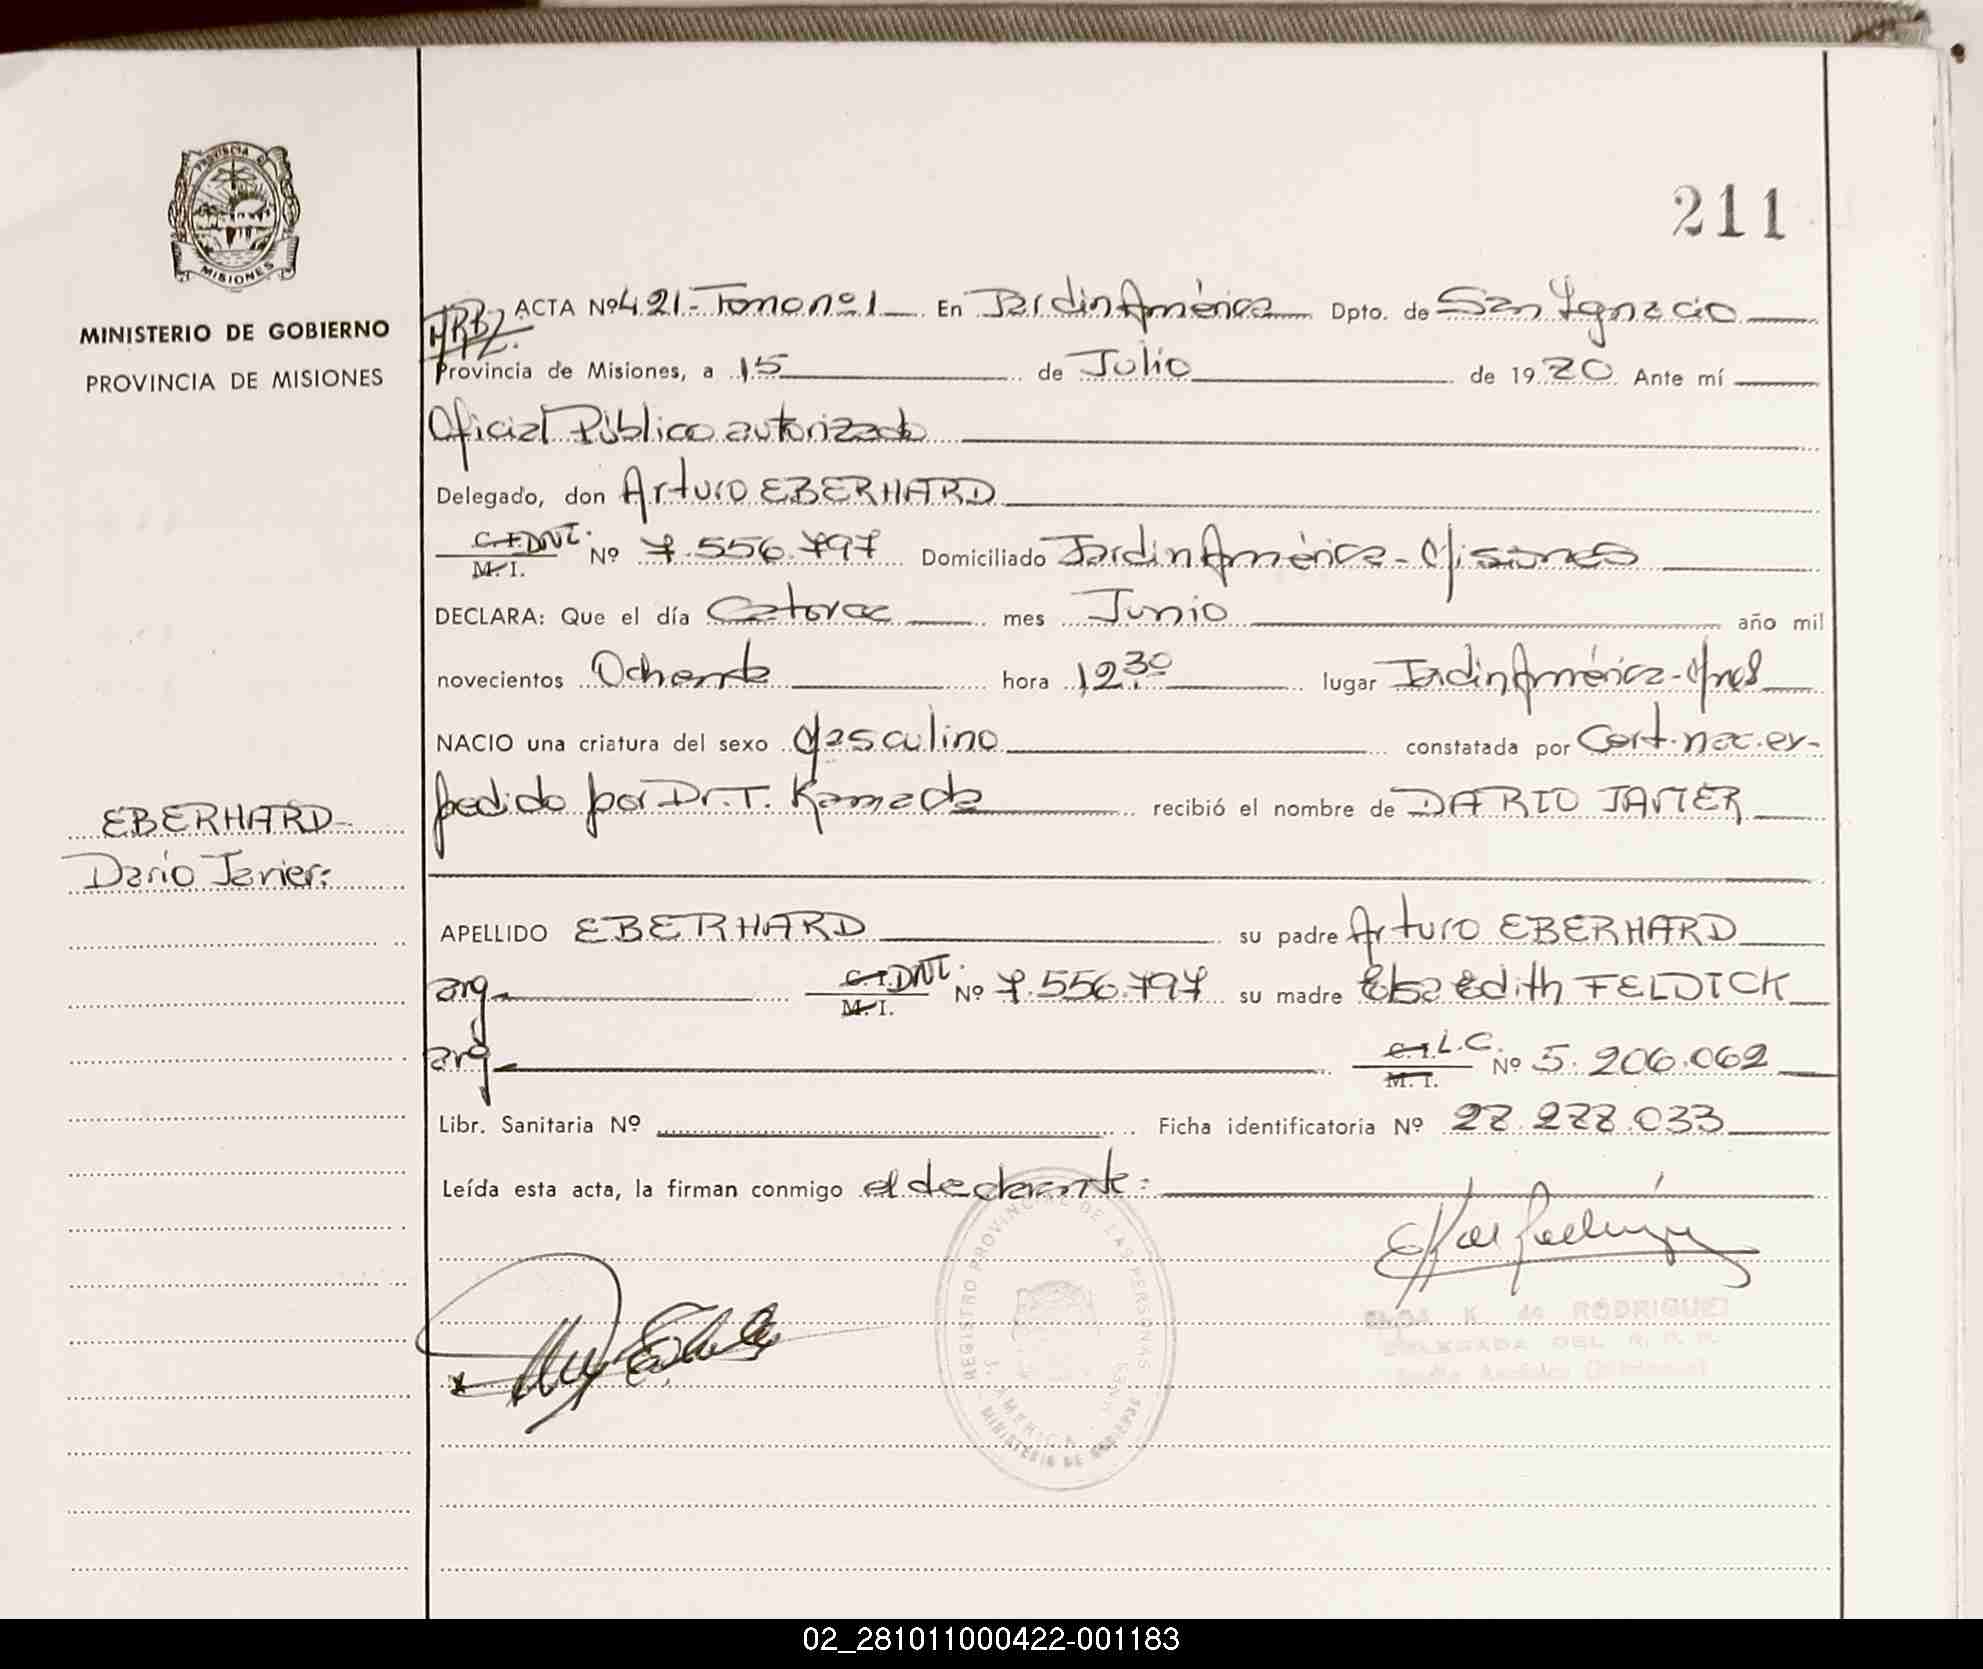 211
PROVINCIA DE
MISIONES
MINISTERIO DE GOBIERNO
PROVINCIA DE MISIONES
ACTA Nº 421.- Tomo nº 1 En Jardin América Dpto. de San Ignacio
Provincia de Misiones, a 15 de Julio de 1980 Ante mí
Oficial Público autorizado
Delegado, don Arturo EBERHARD
C.I. DNI. M.I. Nº 7.556.797 Domiciliado Jardin América - Misiones
DECLARA: Que el día Catorce mes Junio año mil
novecientos Ochenta hora 12.30 lugar Jardin América - Mnes
NACIO una criatura del sexo Masculino constatada por Cert. nac. ex-
pedido por Dr. T. Kamada recibió el nombre de DARIO JAVIER
EBERHARD
Dario Javier.
APELLIDO EBERHARD su padre Arturo EBERHARD
arg C.I. DNI. M.I. Nº 7.556.797 su madre Elsa Edith FELDICK
arg C.I. L.C. M.I. Nº 5.206.062
Libr. Sanitaria Nº Ficha identificatoria Nº 28.288.033
Leída esta acta, la firman conmigo el declarante:
REGISTRO PROVINCIAL DE LAS PERSONAS
J. AMERICA
MINISTERIO DE GOBIERNO
K. de RODRIGUEZ
DELEGADA DEL R. P. P.
Jardín América (Misiones)
02_281011000422-001183